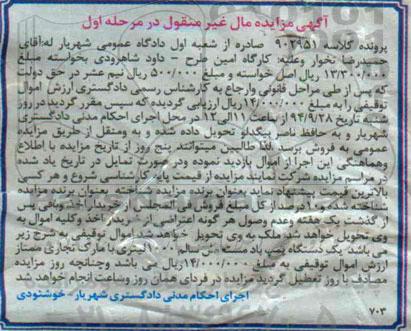 آگهی مزایده مال غیر منقول در مرحله اول
پرونده کلاسه ۹۰۲۹۵۱ صادره از شعبه اول دادگاه عمومی شهریار له:آقای
حمیدرضا نخوار وعلیه: کارگاه امین طرح - داود شاهرودی بخواسته مبلغ
۱۳/۳۰۰/۰۰۰ ریال اصل خواسته و مبلغ ۵۰۰/۰۰۰ ریال نیم عشر در حق دولت
که پس از طی مراحل قانونی وارجاع به کارشناس رسمی دادگستری ارزش اموال
توقیفی را به مبلغ ۱۴/۰۰۰/۰۰۰ ریال ارزیابی گردیده که سپس مقرر گردید در روز
شنبه تاریخ ۹۴/۹/۲۸ از ساعت ۱۱ الی ۱۲ در محل اجرای احکام مدنی دادگستری
شهریار و به حافظ ناصر بیگدلو تحویل داده شده و به ومنقل از طریق مزایده
عمومی به فروش برسد لذا طالبین میتوانند پنج روز از تاریخ مزایده با اطلاع
وهماهنگی این اجرا از اموال بازدید نموده ودر صورت تمایل در تاریخ یاد شده
در مراسم مزایده شرکت نمایند مزایده از قیمت پایه کارشناسی شروع و هر کسی
بالاترین قیمت پیشنهاد نماید بعنوان برنده مزایده شناخته بعنوان برنده مزایده
شناخته شده که ۱۰ درصد از کل مبلغ فروش فی المجلس از خریدار اخذ ومابقی پس
از گذشت یک هفته وعدم وصول هر گونه اعتراضی از خریدار اخذ وکلیه اموال به
وی تحویل خواهد شد ملک به وی تحویل خواهد شد. اموال توقیفی به شرح زیر
می باشد: یک دستگاه پمپ باد مستعمل سالم ۱۰۰۰ لیتری با مارک تجاری ممتاز
ارزش اموال توقیفی به مبلغ ۱۴/۰۰۰/۰۰۰ ریال می باشد وچنانچه روز مزایده
مصادف با روز تعطیل گردید مزایده در فردای همان روز وساعت انجام خواهد شد
اجرای احکام مدنی دادگستری شهریار - خوشنودی
۷۰۳